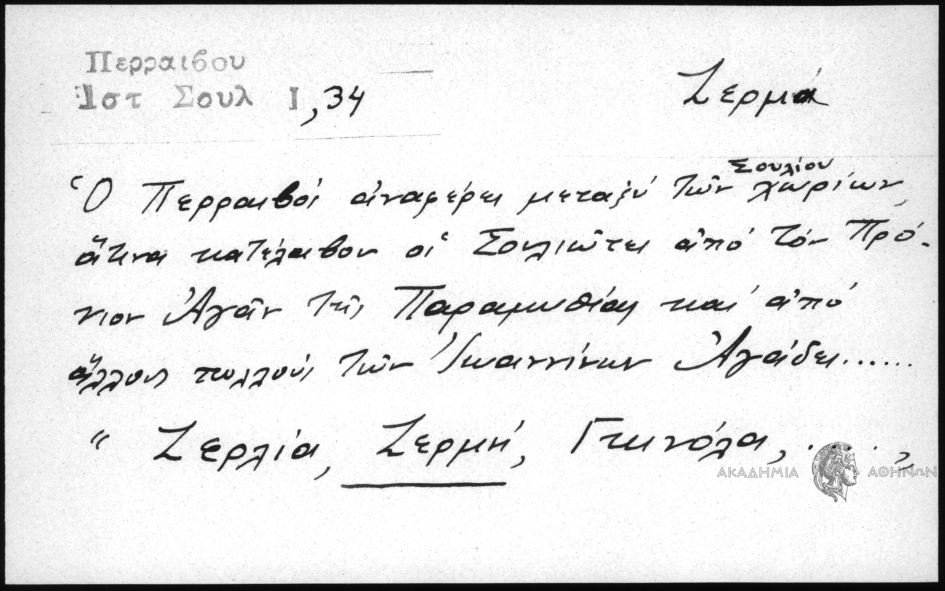 Περραιβου
Ιστ Σουλ Ι, 34
Ζερμά
Σουλίου
Ὁ Περραιβός ἀναφέρει μεταξύ τῶν χωρίων,
ἅτινα κατέλαβον οἱ Σουλιῶται ἀπό τόν Πρό-
νιον Ἀγᾶν τῆς Παραμυθίας καί ἀπό
ἄλλους πολλούς τῶν Ἰωαννίνων Ἀγάδες......
" Ζερλία, Ζερμή, Γκινόλα, .....,,
ΑΚΑΔΗΜΙΑ ΑΘΗΝΩΝ